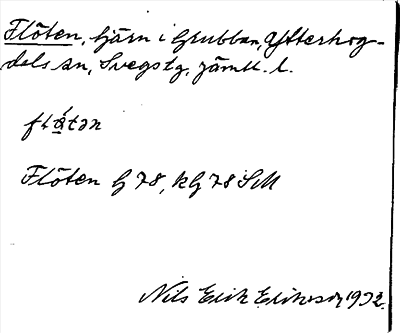 Flöten, tjärn i Grubban, Ytterhog-
dals sn, Svegs tg, Jämtl. l.
Flöten G 78, kG 78 SM
Nils Erik Eriksson 1932.